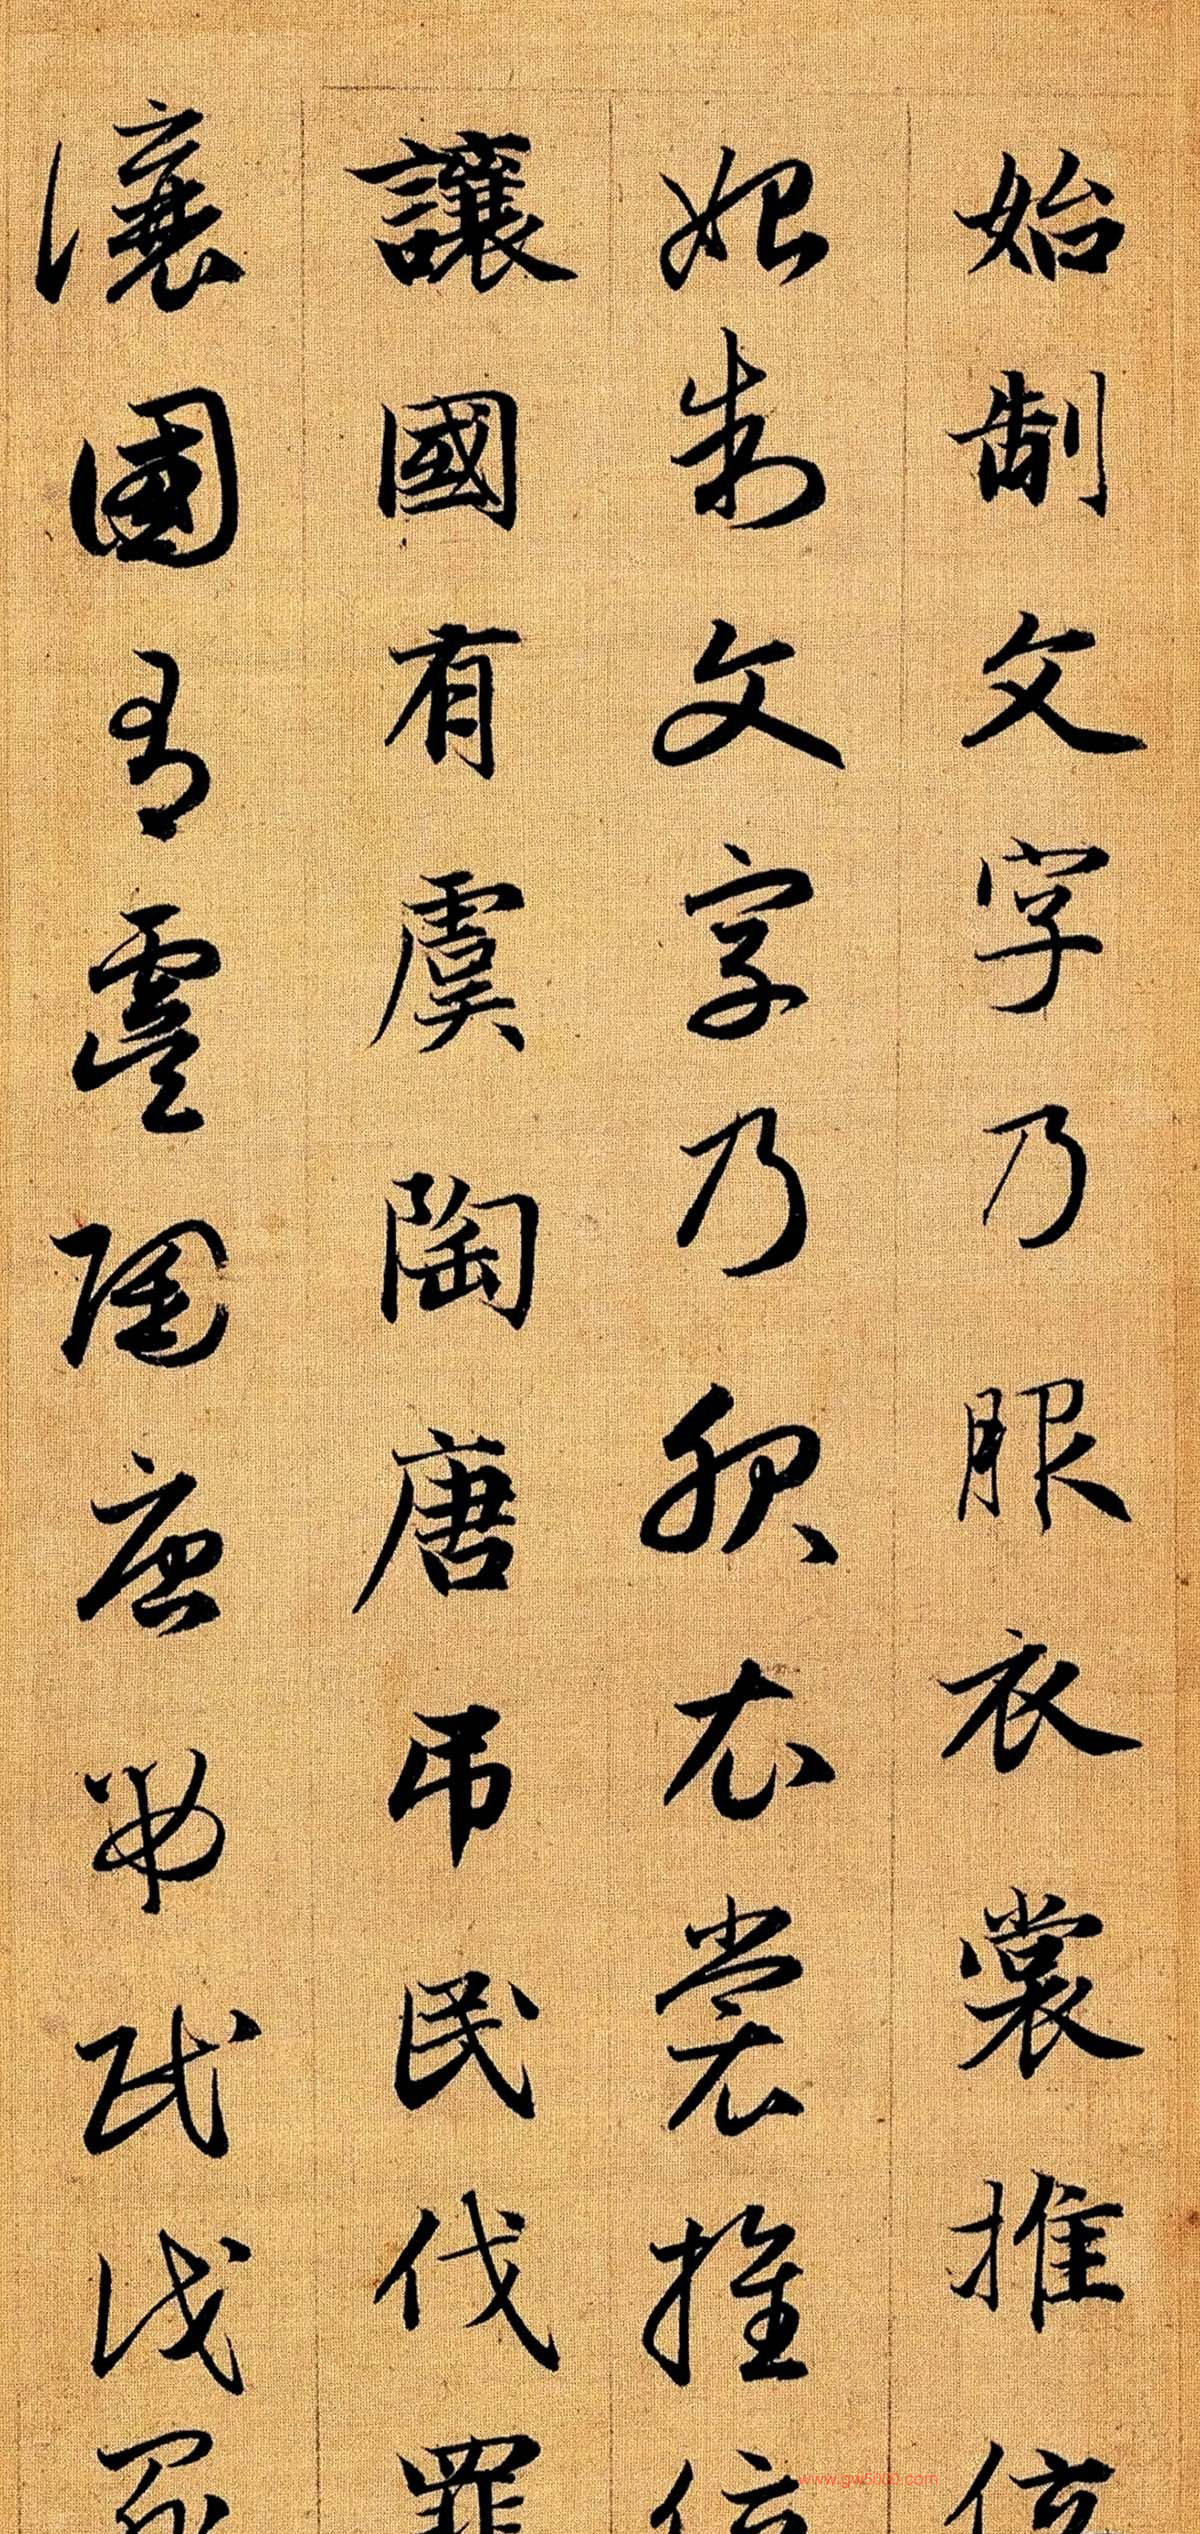 始制文字乃服衣裳推位
始制文字乃服衣裳推位
讓國有虞陶唐弔民伐罪
讓國有虞陶唐弔民伐罪
www.gw5000.com